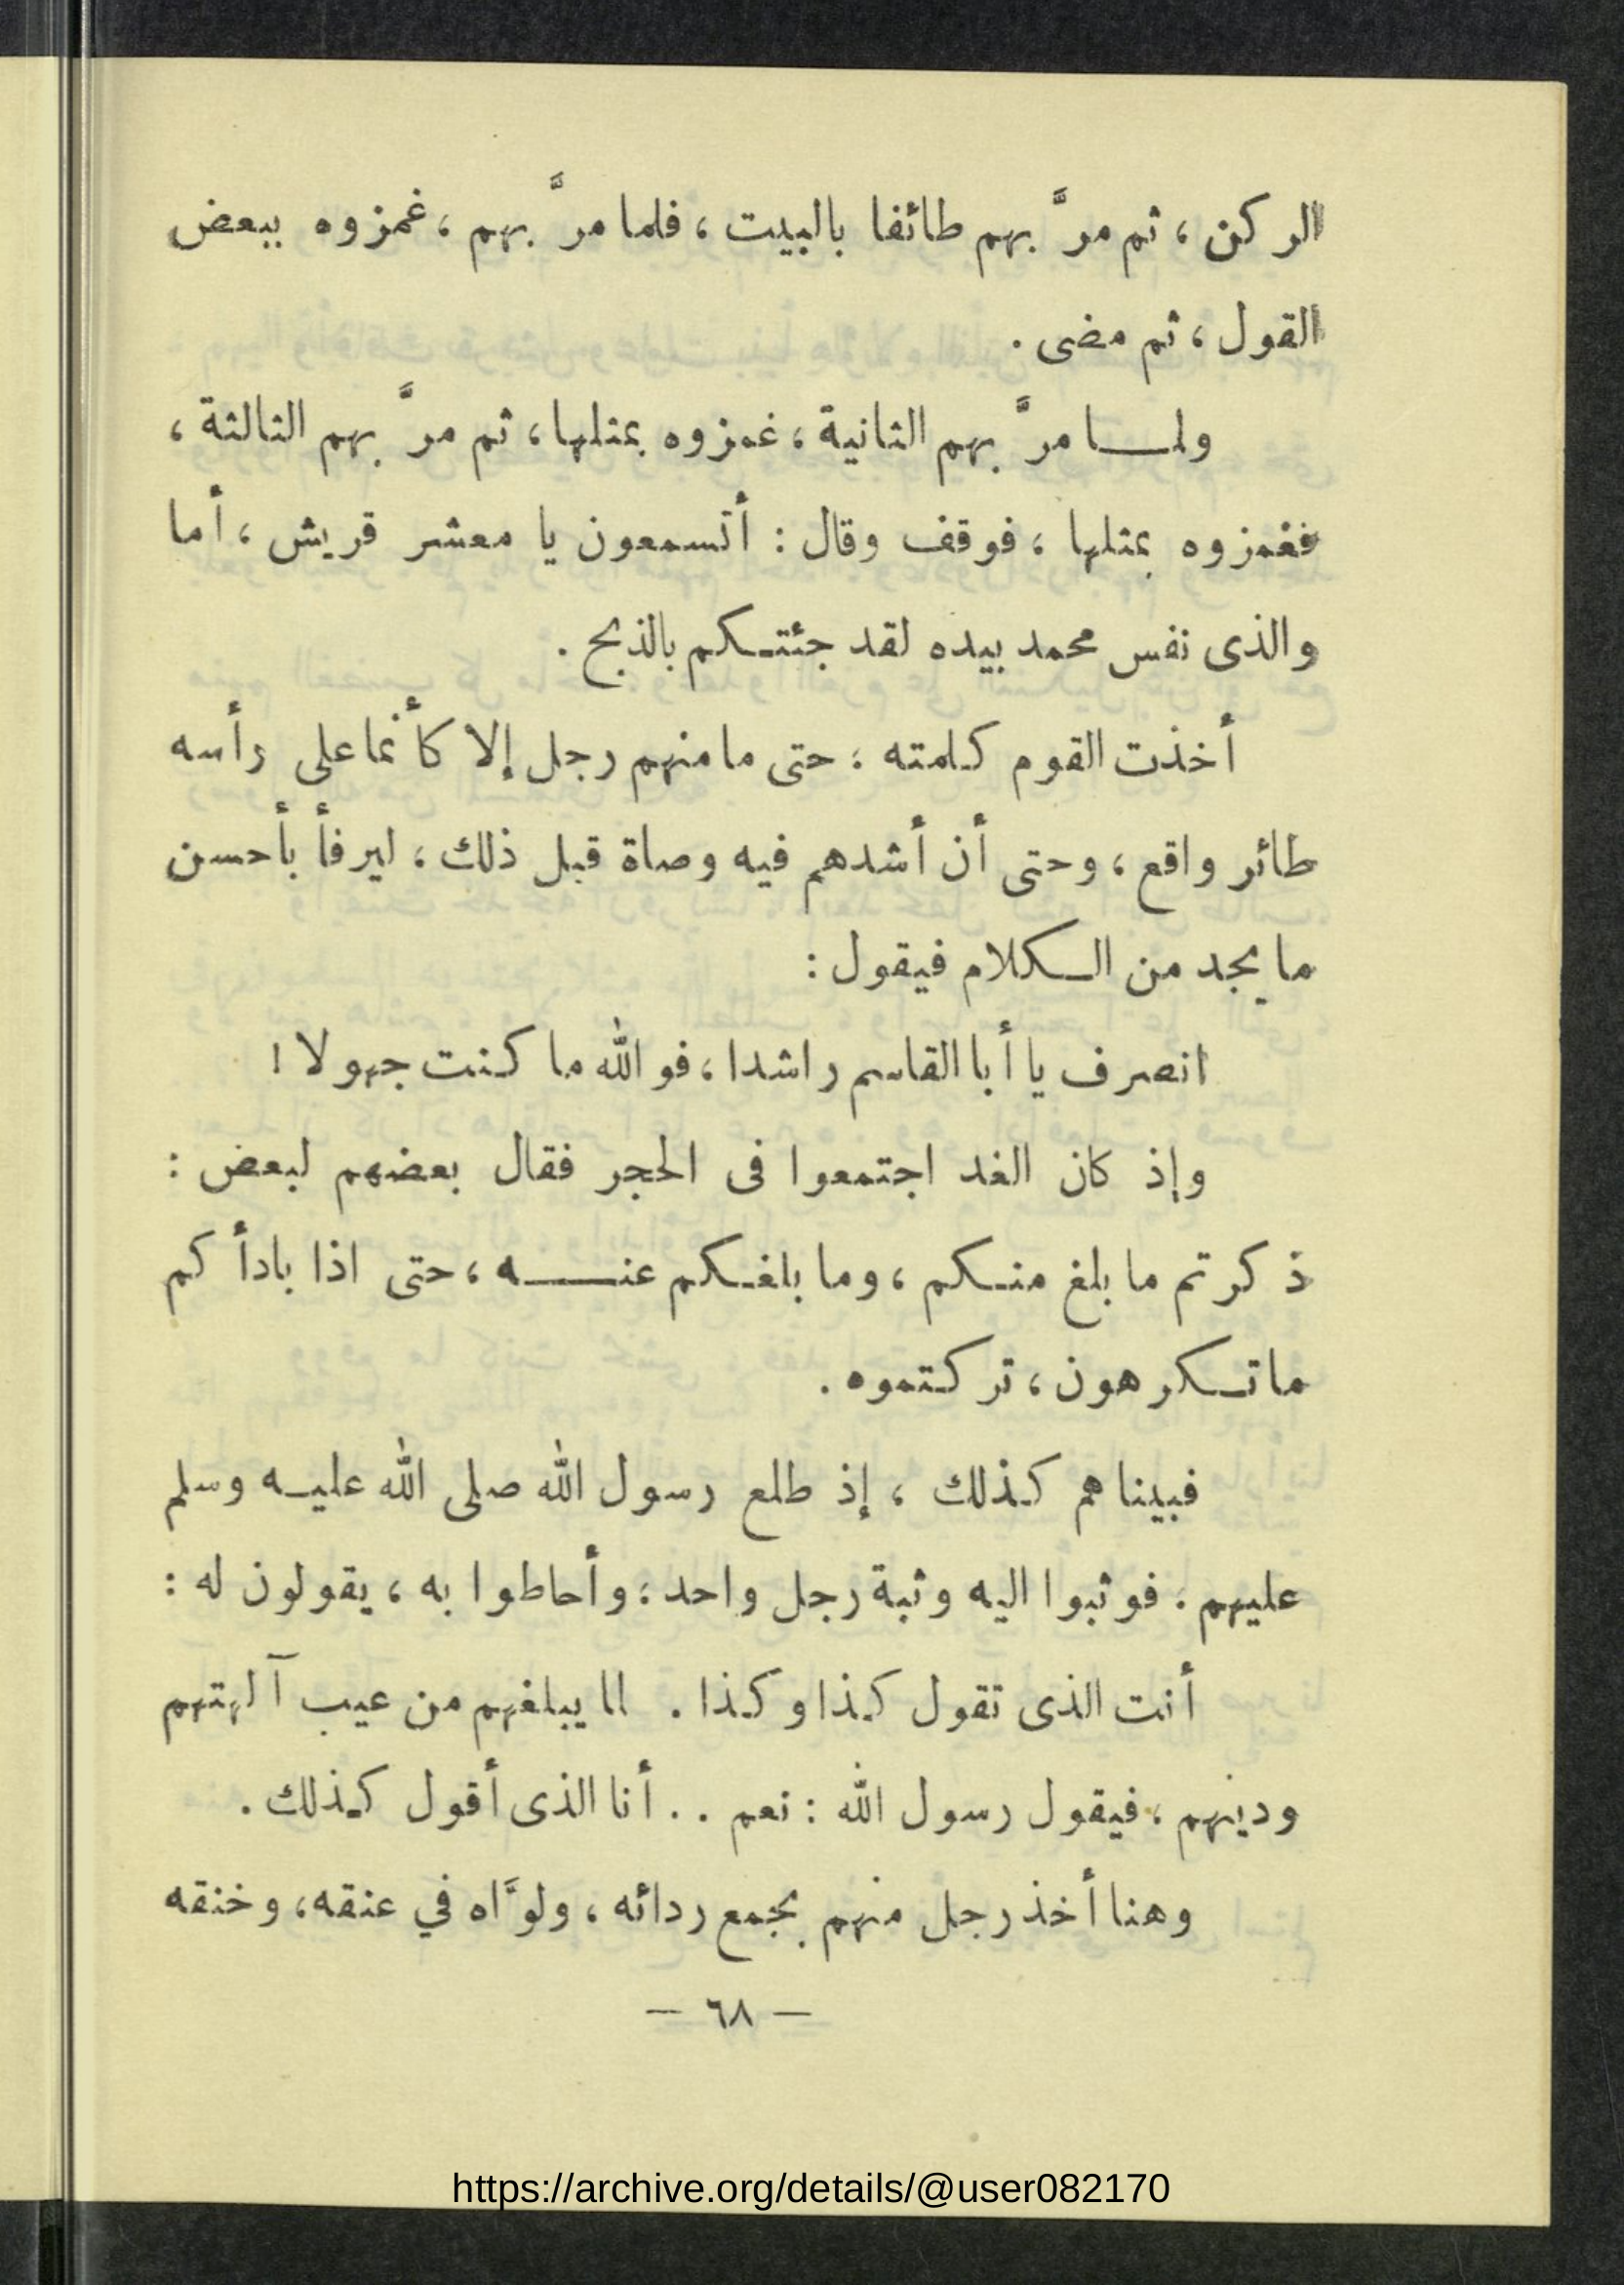 الركن ، ثم مرَّ بهم طائفا بالبيت ، فلما مرَّ بهم ، غمزوه ببعض
القول ، ثم مضى .
ولمـــا مرَّ بهم الثانية ، غمزوه بمثلها ، ثم مرَّ بهم الثالثة ،
فغمزوه بمثلها ، فوقف وقال : أتسمعون يا معشر قريش ، أما
والذى نفس محمد بيده لقد جئتـكم بالذبح .
أخذت القوم كلمته ؛ حتى ما منهم رجل إلا كأنما على رأسه
طائر واقع ، وحتى أن أشدهم فيه وصاة قبل ذلك ، ليرفأ بأحسن
ما يجد من الـكلام فيقول :
انصرف يا أبا القاسم راشدا ، فو الله ما كنت جهولا !
وإذ كان الغد اجتمعوا فى الحجر فقال بعضهم لبعض :
ذكرتم ما بلغ منـكم ، وما بلغـكم عنـــه ، حتى اذا بادأكم
ما تـكرهون ، تركتموه .
فبينا هم كذلك ، إذ طلع رسول الله صلى الله عليـه وسلم
عليهم . فوثبوا اليه وثبة رجل واحد ؛ وأحاطوا به ، يقولون له :
أنت الذى تقول كذا وكذا . لما يبلغهم من عيب آلهتهم
ودينهم ، فيقول رسول الله : نعم . . أنا الذى أقول كذلك .
وهنا أخذ رجل منهم بجمع ردائه ، ولوَّاه في عنقه ، وخنقه
— ٦٨ —
https://archive.org/details/@user082170